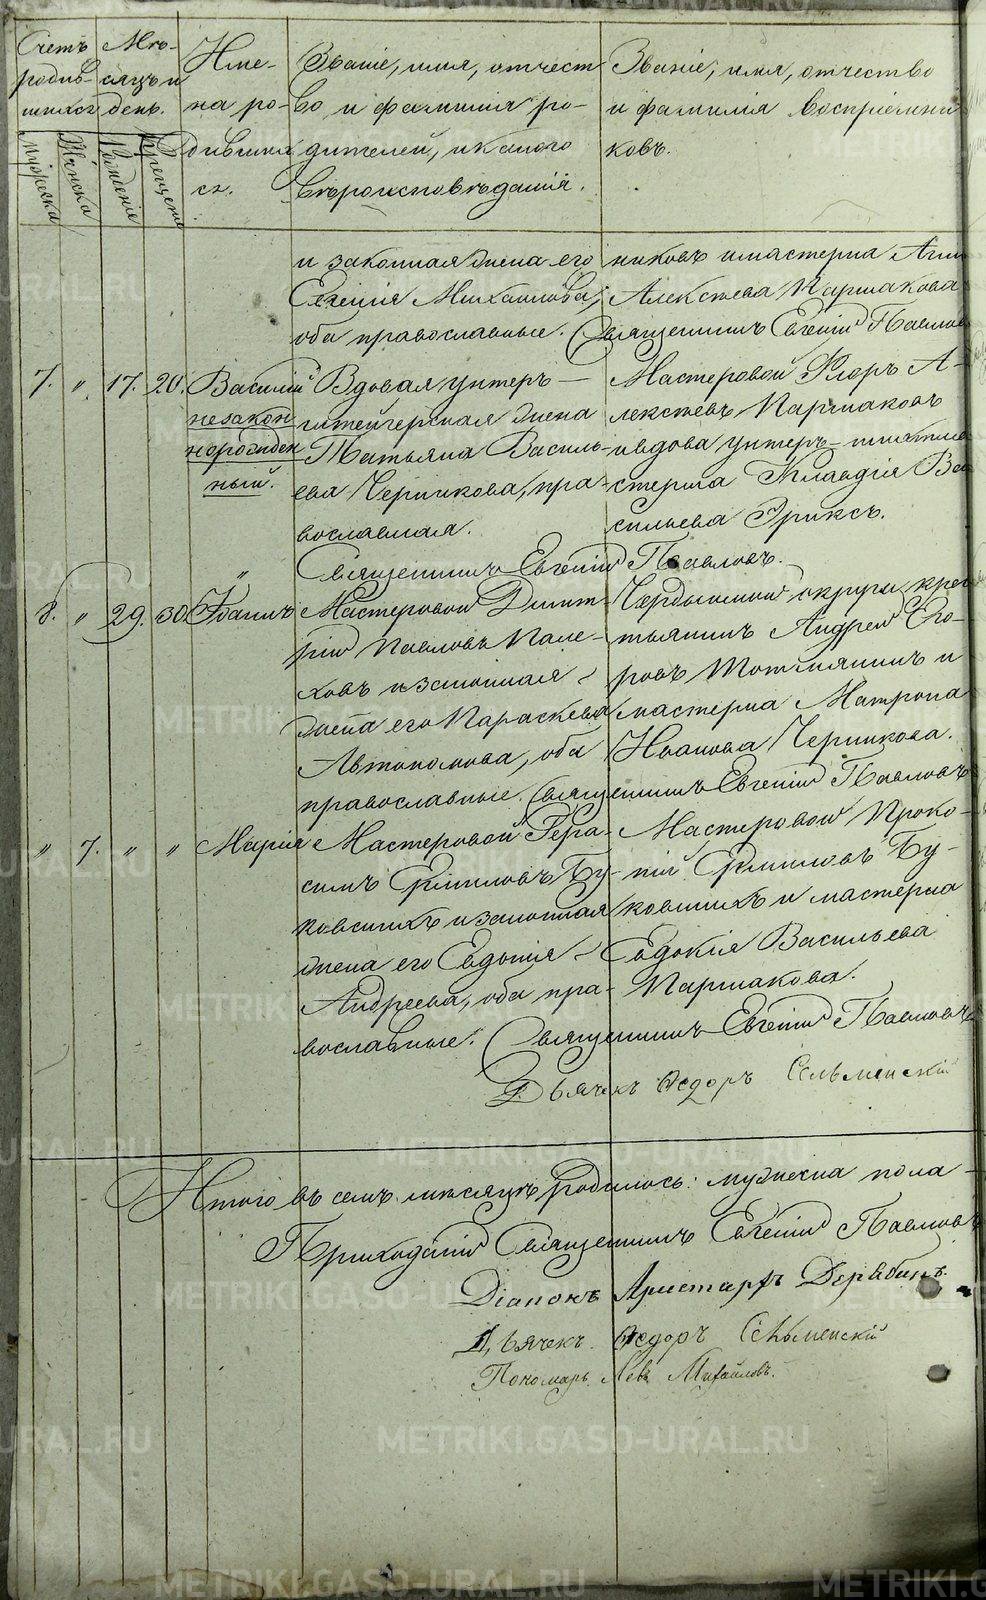 Счетъ родив- шихся.
Мѣ- сяцъ и день.
Име- на ро- дивших ся.
Званіе, имя, отчест во и фамилія ро- дителей, и какого вѣроисповѣданія.
Званіе, имя, отчество и фамилія воспріемни ковъ.
Мужеска
Женска
Рожденія
Крещенія
и законная жена его
Евгенія Михайлова,
оба православные.
никовъ и мастерша Анна
Алексѣева Паршакова
Священникъ Евгеній Павловъ
7. „ 17. 20. Василій
незакон
норожден
ный.
Вдовая унтеръ-
шмейстерская жена
Татьяна Василь-
ева Черникова, пра-
вославная.
Мастеровой Флоръ А-
лексѣевъ Паршаковъ
и вдова унтеръ-
Клавдія Ва
сильева Эриксъ.
Священникъ Евгеній Павловъ.
8. „ 29. 30. Іоаннъ
Мастеровой Димит-
рій Павловъ Пале-
ховъ и законная
жена его Параскева
Автономова, оба
православные.
Чердынской округи крес
тьянинъ Андрей Его-
ровъ и
мастерша Матрона
Иванова Черникова.
Священникъ Евгеній Павловъ
„ 7. „ „ Марія
Мастеровой Гера-
симъ Ермиловъ Бу-
ковскихъ и законная
жена его Евдокія
Андреева, оба пра-
вославные.
Мастеровой Проко-
пій Ермиловъ Бу-
ковскихъ и мастерша
Евдокія Васильева
Паршакова.
Священникъ Евгеній Павловъ
Дьячекъ Ѳедоръ Сельменскій
Итого въ семъ мѣсяцѣ родилось: мужеска пола
Приходскій Священникъ Евгеній Павловъ
Діаконъ Аристархъ Дерябинъ.
Дьячекъ Ѳедоръ Сельменскій
Пономарь Левъ Михайловъ.
METRIKI.GASO-URAL.RU